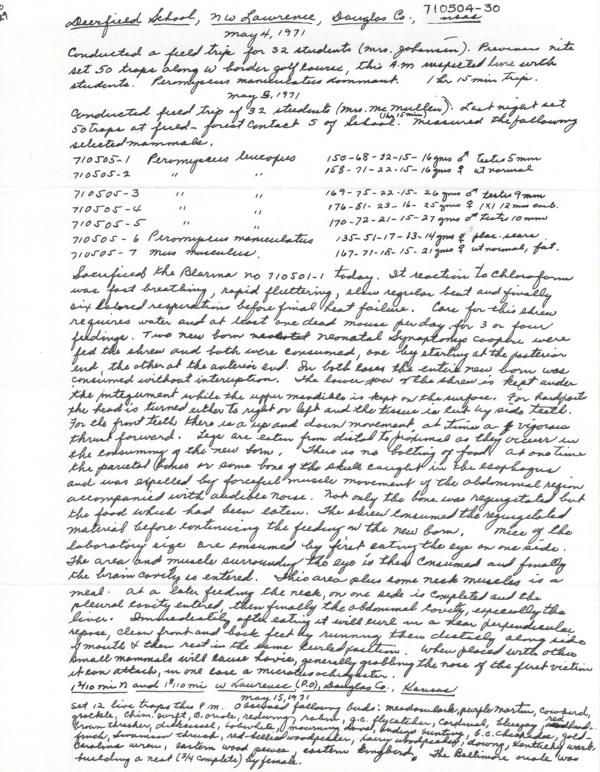 Deerfield School, NW Lawrence, Douglas Co., 710504-30
Kans
May 4, 1971
Conducted a field trip for 32 students (Mrs. Johansen). Previous nite
set 50 traps along W border golf course, this A.M inspected line with
students. Peromyscus maniculatus dominant. 1 hr 15 min trip.
May 5, 1971
Conducted field trip of 32 students (Mrs. McMullen). (1 hr 15 min) Last night set
50 traps at field-forest contact S of School. Measured the following
selected mammals.
710505-1 Peromyscus leucopus 150-68-22-15-16 gms ♂ testes 5 mm
710505-2 " " 158-71-22-15-16 gms ♀ ut normal
710505-3 " " 169-75-22-15-26 gms ♂ testes 9 mm
710505-4 " " 176-81-23-16-25 gms ♀ 1X1 12 mm emb.
710505-5 " " 170-72-21-15-27 gms ♂ testes 10 mm
710505-6 Peromyscus maniculatus 135-51-17-13-14 gms ♀ plac. scars
710505-7 Mus musculus. 167-71-18-15-21 gms ♀ ut normal, fat.
Sacrificed the Blarina no 710501-1 today. It reaction to chloroform
was fast breathing, rapid fluttering, slow regular beat and finally
six labored respirations before final heat failure. Care for this shrew
requires water and at least one dead mouse per day for 3 or four
feedings. Two new born neonatal Synaptomys cooperi were
fed the shrew and both were consumed, one by starting at the posterior
end, the other at the anterior end. In both cases the entire new born was
consumed without interruption. The lower jaw of the shrew is kept under
the integument while the upper mandible is kept on the surface. For hard parts
the head is turned either to right or left and the tissue is cut by side teeth.
For the front teeth there is a up and down movement, at times a vigorous
thrust forward. Legs are eaten from distal to proximal as they occur in
the consuming of the new born. There is no bolting of food. At one time
the parietal bones or some bone of the skull caught in the esophagus
and was expelled by forceful muscle movement of the abdominal region
accompanied with audible noise. Not only the bone was regurgitated but
the food which had been eaten. The shrew consumed the regurgitated
material before continuing the feeding on the new born. Mice of the
laboratory size are consumed by first eating the eye on one side.
The area and muscle surrounding the eye is then consumed and finally
the brain cavity is entered. This area plus some neck muscles is a
meal. At a later feeding the neck, on one side is completed and the
pleural cavity entered, then finally the abdominal cavity, especially the
liver. Immediately after eating it will curl in a near perpendicular
repose, clean front and back feet by running them distally along side
of mouth & then rest in the same curled position. When placed with other
small mammals will cause havoc, generally grabbing the nose of the first victim
it can attack, in one case a Microtus ochrogaster.
1 4/10 mi N and 1 8/10 mi W Lawrence (P.O), Douglas Co., Kansas
May 15, 1971
Set 12 live traps this P.M.. Observed following birds: meadowlark, purple martin, cowbird,
grackle, chim. swift, B. oriole, redwing, robin, g.c. flycatcher, cardinal, bluejay, red
brown thrasher, dickcissel, bobwhite, mourning dove, indigo bunting, b.c. chickadee, gold-
finch, Swainson thrush, red-bellied woodpecker, hairy woodpecker, downy, Kentucky warb.
Carolina wren, eastern wood pewee, eastern kingbird. The Baltimore oriole was
building a nest (3/4 complete) by female.